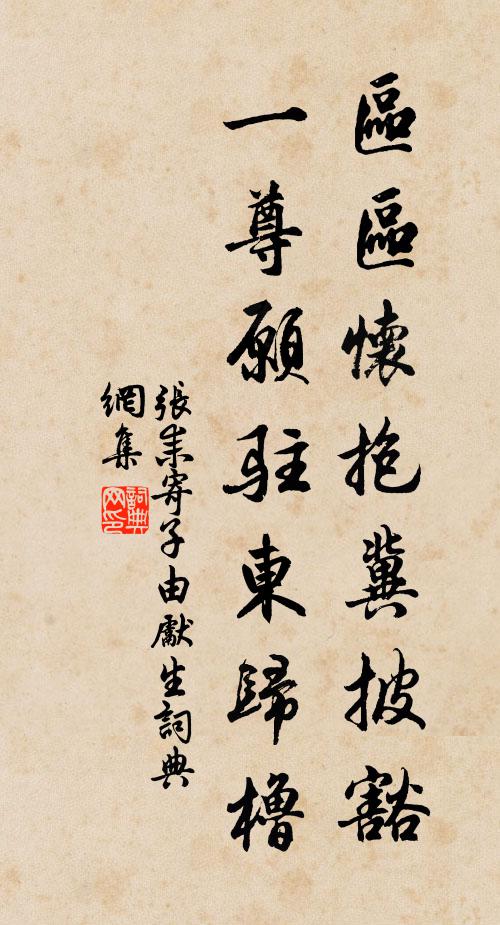 區區懷抱冀披豁
一尊願駐東歸櫓
張耒寄子由獻生詞典
網集
詞典
网印